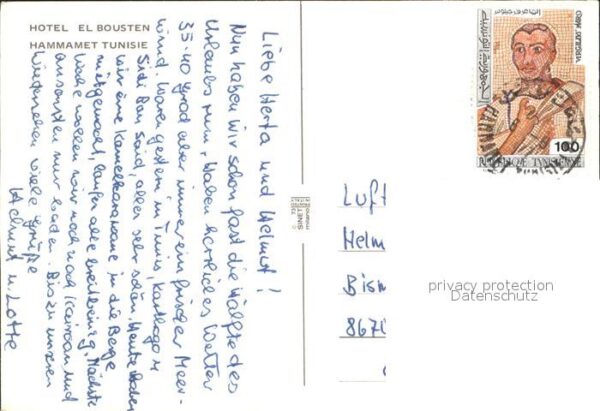 HOTEL EL BOUSTEN
HAMMAMET TUNISIE
Liebe Herta und Helmut!
Nun haben wir schon fast die Hälfte des
Urlaubs rum, haben herrliches Wetter
35-40 Grad aber immer ein frischer Meer-
wind. Waren gestern in Tunis, Karthago u
Sidi Bou Said, alles sehr schön. Heute haben
wir eine Kamelkarawane in die Berge
mitgemacht, laufen alle breitbeinig. Nächste
Woche wollen wir noch nach Kairouan und
ansonsten nur baden. Bis zu unserem
Wiedersehen viele Grüße
Helmut u. Lotte
100
REPUBLIQUE TUNISIENNE
Luft
Helm
Bism
8670
privacy protection
Datenschutz